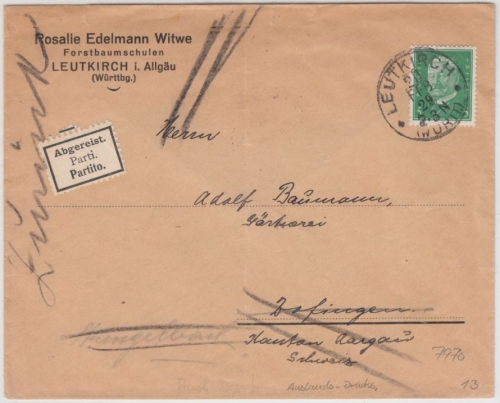 Rosalie Edelmann Witwe
Forstbaumschulen
LEUTKIRCH i. Allgäu
(Württbg.)
LEUTKIRCH
(WÜRTT)
Abgereist.
Parti.
Partito.
Zurück
Herrn
Adolf Baumann,
Gärtnerei
Zofingen
Kanton Aargau
Schweiz
7970
13